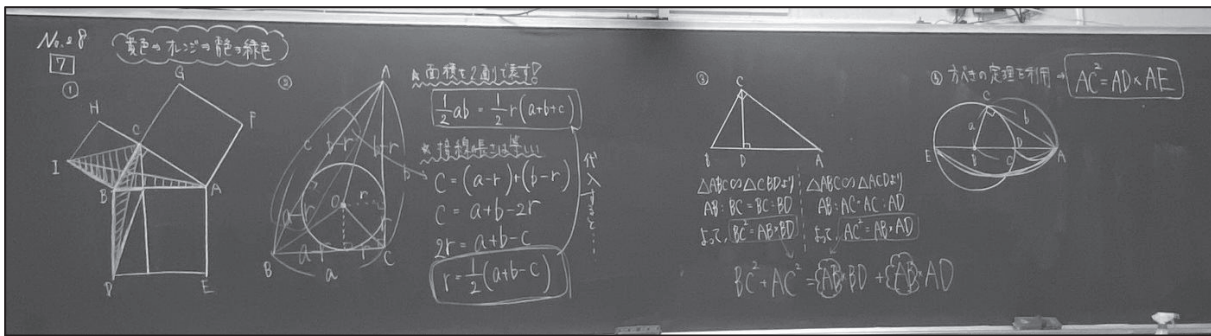 No.28
黄色→オレンジ→青色→緑色
7
①
G
H
F
C
I
B
A
D
E
②
A
c
b-r
b-r
b
r
a-r
a-r
r
B
a
C
★面積を2通りで表す!
1/2 ab = 1/2 r(a+b+c)
★接線の長さは等しい
C = (a-r)+(b-r)
C = a+b-2r
2r = a+b-c
r = 1/2 (a+b-c)
代入すると…
③
C
B
D
A
△ABC∽△CBDより
AB:BC=BC:BD
よって、BC²=AB×BD
△ABC∽△ACDより
AB:AC=AC:AD
よって AC²=AB×AD
BC²+AC²=AB×BD+AB×AD
方べきの定理を利用→
AC²=AD×AE
C
a
b
D
E
B
C
A